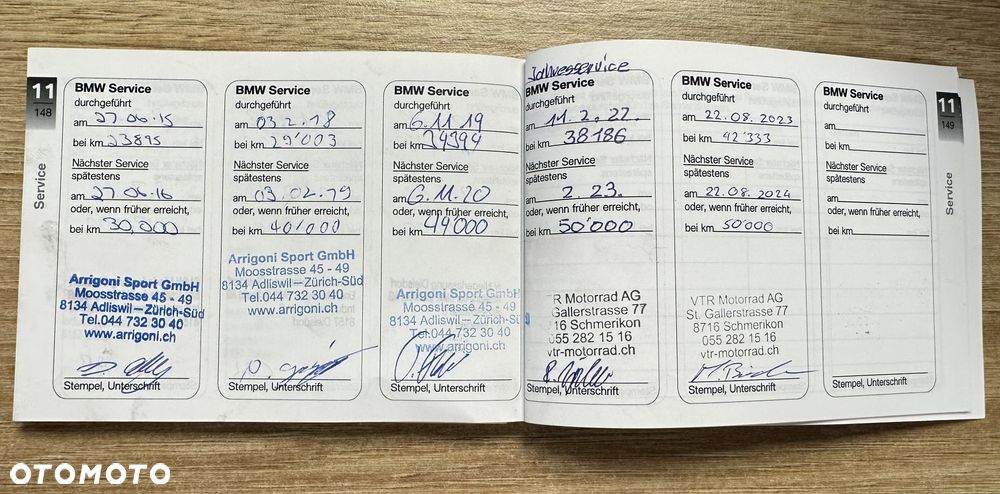 11
148
Service
BMW Service
durchgeführt
am 27.06.15
bei km 23895
Nächster Service
spätestens
am 27.06.16
oder, wenn früher erreicht,
bei km 30,000
Arrigoni Sport GmbH
Moosstrasse 45 - 49
8134 Adliswil – Zürich-Süd
Tel.044 732 30 40
www.arrigoni.ch
Stempel, Unterschrift
BMW Service
durchgeführt
am 03.2.18
bei km 29'003
Nächster Service
spätestens
am 03.02.19
oder, wenn früher erreicht,
bei km 40'000
Arrigoni Sport GmbH
Moosstrasse 45 - 49
8134 Adliswil – Zürich-Süd
Tel.044 732 30 40
www.arrigoni.ch
Stempel, Unterschrift
BMW Service
durchgeführt
am 6.11.19
bei km 34394
Nächster Service
spätestens
am 6.11.20
oder, wenn früher erreicht,
bei km 44'000
Arrigoni Sport GmbH
Moosstrasse 45 - 49
8134 Adliswil – Zürich-S
Tel.044 732 30 40
www.arrigoni.ch
Stempel, Unterschrift
Jahresservice
BMW Service
durchgeführt
am 11. 2. 22.
bei km 38186
Nächster Service
spätestens
am 2. 23.
oder, wenn früher erreicht,
bei km 50'000
TR Motorrad AG
Gallerstrasse 77
16 Schmerikon
055 282 15 16
vtr-motorrad.ch
Stempel, Unterschrift
BMW Service
durchgeführt
am 22.08.2023
bei km 42'333
Nächster Service
spätestens
am 22.08.2024
oder, wenn früher erreicht,
bei km 50'000
VTR Motorrad AG
St. Gallerstrasse 77
8716 Schmerikon
055 282 15 16
vtr-motorrad.ch
Stempel, Unterschrift
BMW Service
durchgeführt
am
bei km
Nächster Service
spätestens
am
oder, wenn früher erreicht,
bei km
Stempel, Unterschrift
11
149
Service
OTOMOTO